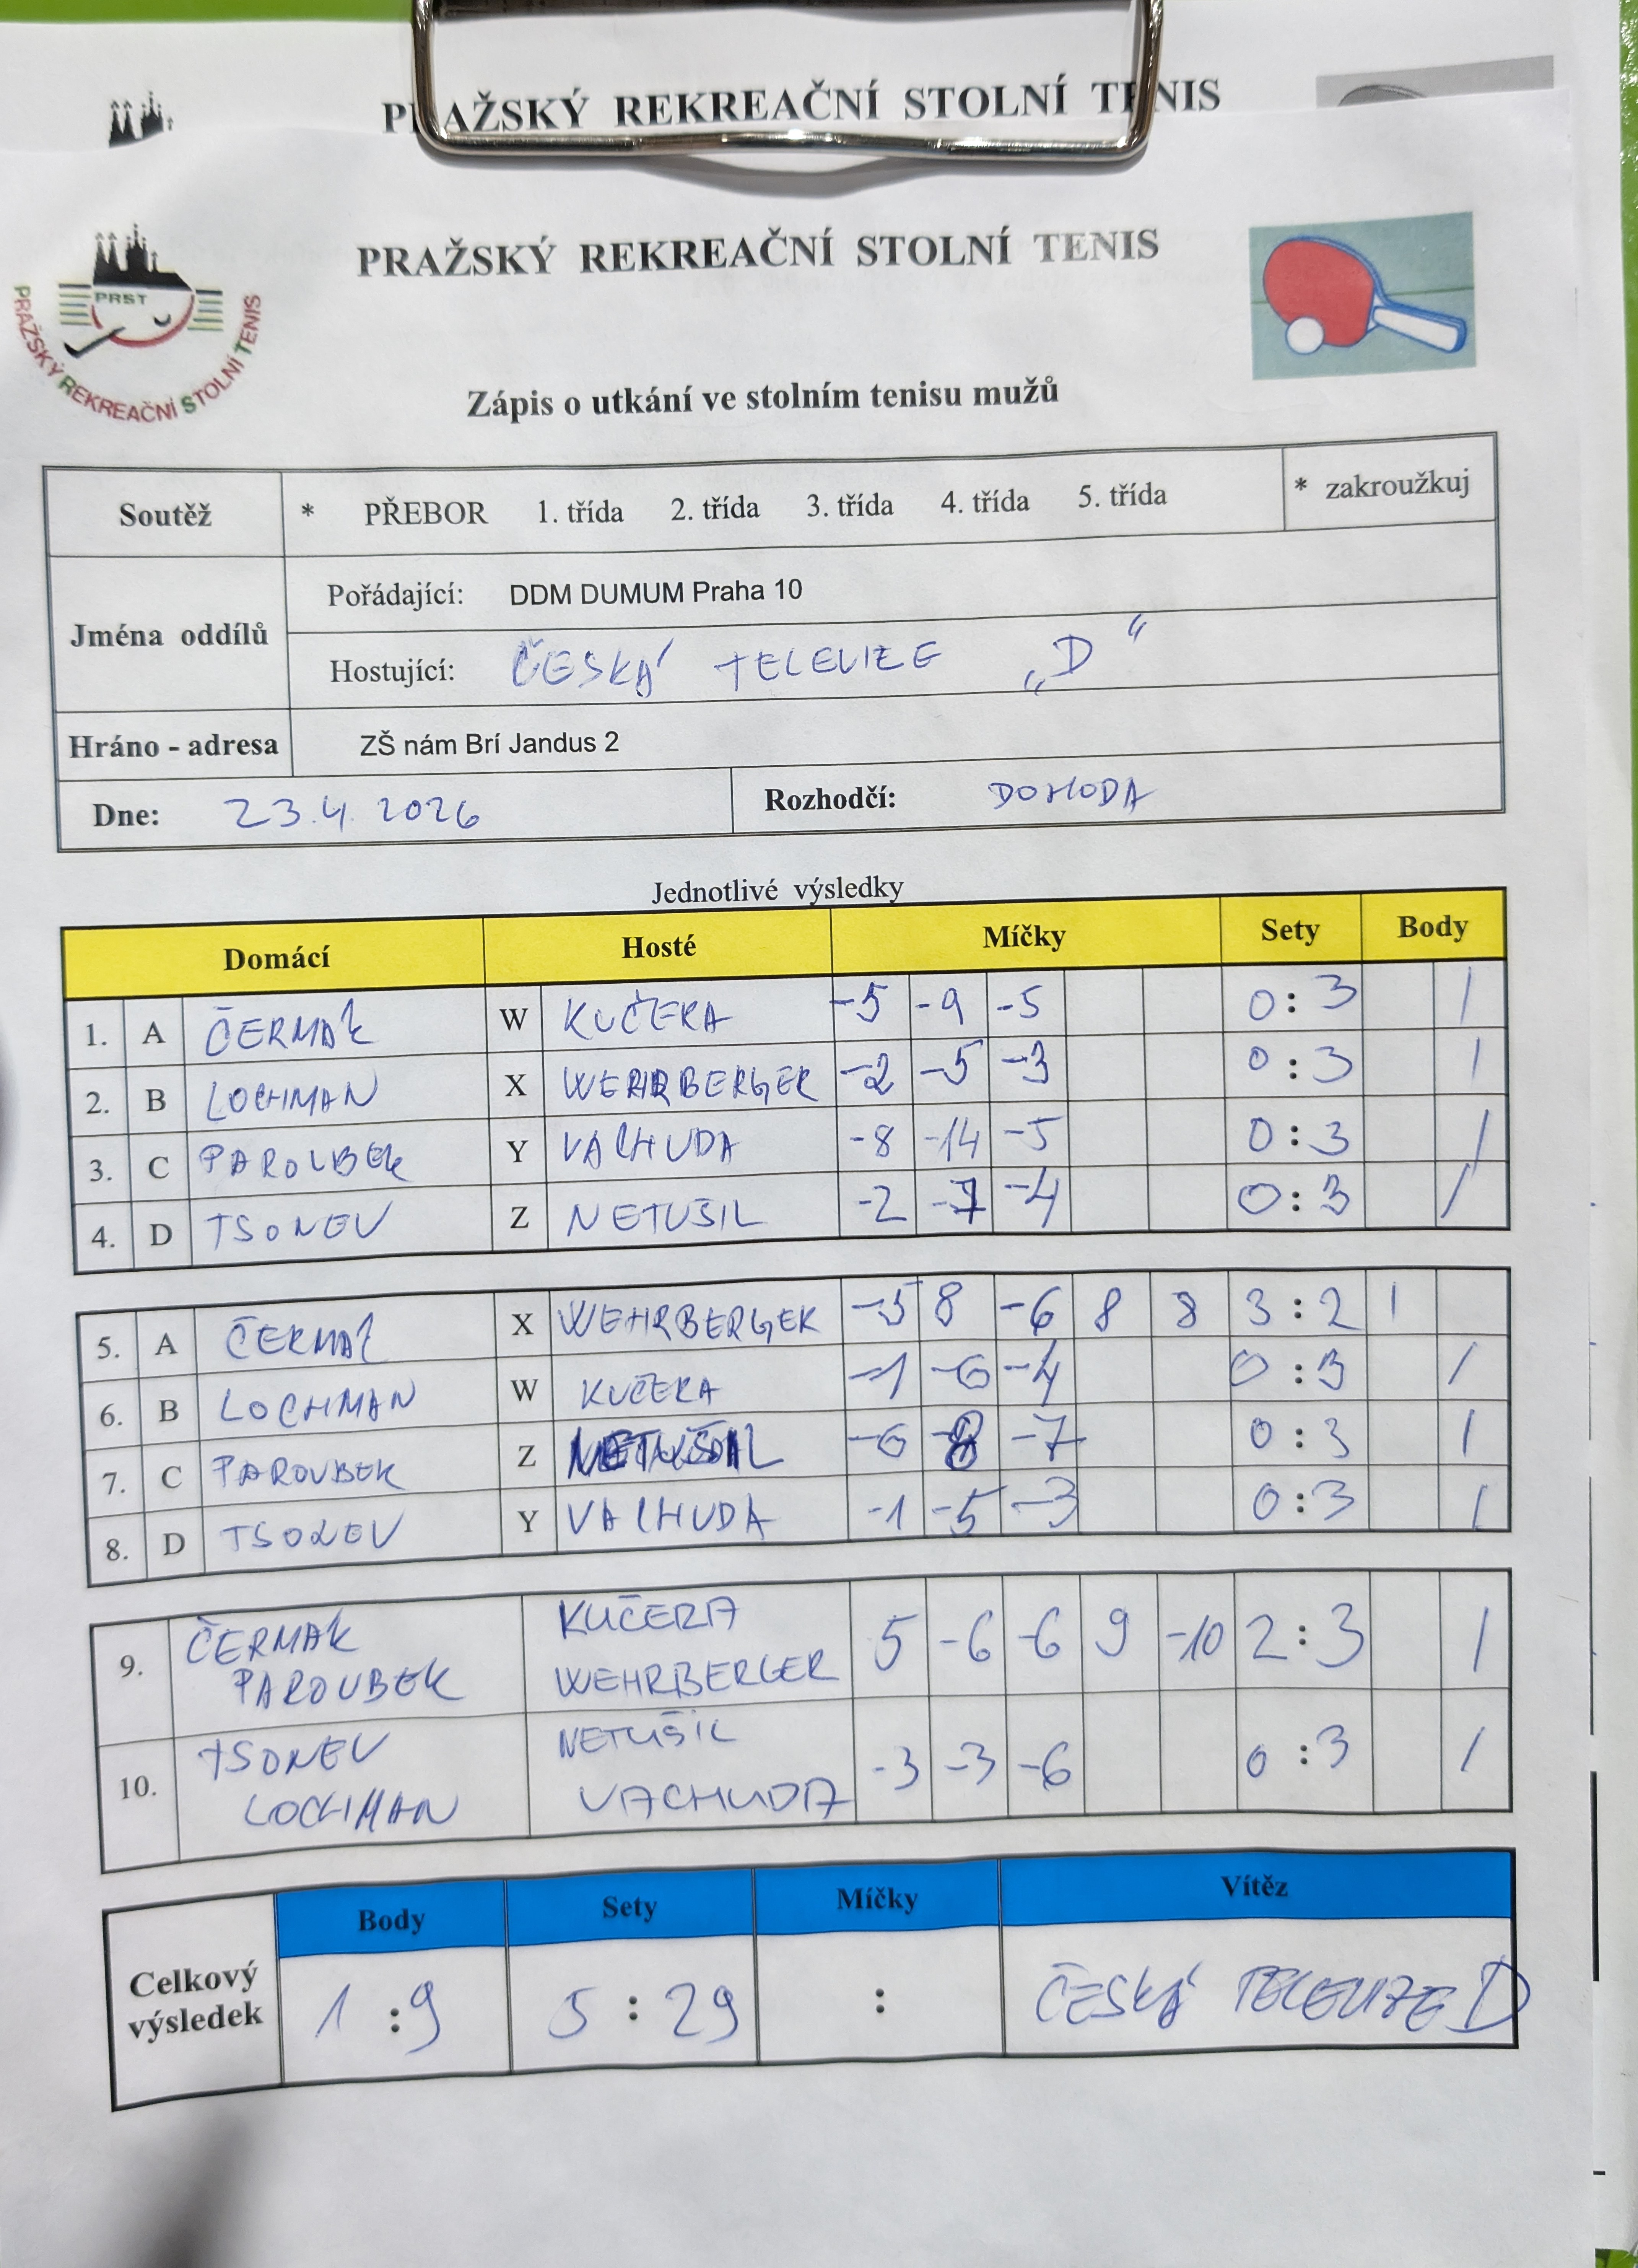 PRAŽSKÝ REKREAČNÍ STOLNÍ TENIS
PRST
PRAŽSKÝ REKREAČNÍ STOLNÍ TENIS
PRAŽSKÝ REKREAČNÍ STOLNÍ TENIS
Zápis o utkání ve stolním tenisu mužů
Soutěž * PŘEBOR 1. třída 2. třída 3. třída 4. třída 5. třída * zakroužkuj
Jména oddílů
Pořádající: DDM DUMUM Praha 10
Hostující: ČESKÁ TELEVIZE „D“
Hráno - adresa ZŠ nám Brí Jandus 2
Dne: 23.4. 2026 Rozhodčí: DOHODA
Jednotlivé výsledky
Domácí Hosté Míčky Sety Body
1. A ČERMÁK W KUČERA -5 -9 -5 0:3 1
2. B LOCHMAN X WEHRBERGER -2 -5 -3 0:3 1
3. C PAROUBEK Y VACHUDA -8 -14 -5 0:3 1
4. D TSONEV Z NETUŠIL -2 -7 -4 0:3 1
5. A ČERMÁK X WEHRBERGER -5 8 -6 8 8 3:2 1
6. B LOCHMAN W KUČERA -1 -6 -4 0:3 1
7. C PAROUBEK Z NETUŠIL -6 -8 -7 0:3 1
8. D TSONEV Y VACHUDA -1 -5 -3 0:3 1
9. ČERMÁK KUČERA 5 -6 -6 9 -10 2:3 1
PAROUBEK WEHRBERGER
10. TSONEV NETUŠIL -3 -3 -6 0:3 1
LOCHMAN VACHUDA
Celkový výsledek
Body Sety Míčky Vítěz
1:9 5:29 : ČESKÁ TELEVIZE D